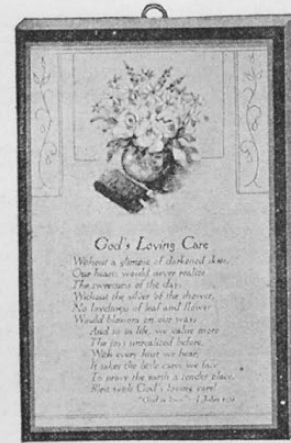 God's Loving Care
Without a glimpse of darkened skies,
Our hearts would never realize
The sweetness of the day;
Without the silver of the shower,
No loveliness of leaf and flower
Would blossom on our way.
And so in life, we value more
The joys unrealized before,
With every hurt we bear;
It takes the little cares we face
To prove the earth a tender place,
Blest with God's loving care!
"God is love" - I John